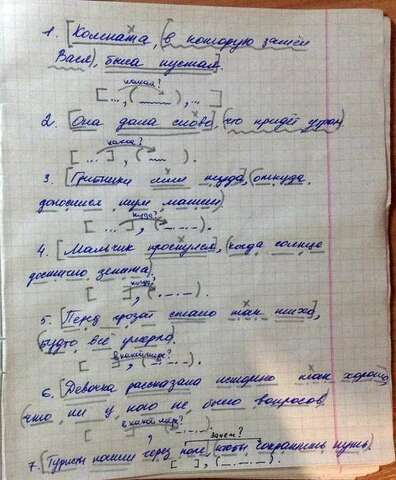 1. [Комната, (в которую зашёл
Вася), была пустая].
какая?
[..., (      ), ...]
2. [Она дала слово], (что придёт утром)
какое?
[ ... ], (      ).
3. [Грибники шли туда], (откуда
доносился шум машин)
куда?
[ ... ], (. — . — .).
4. [Мальчик проснулся], (когда солнце
достигло зенита).
когда?
[      ], (. — . — .).
5. [Перед грозой стало так тихо],
(будто всё умерло).
в какой мере?
[      ], (. — . — .).
6. [Девочка рассказала историю так хорошо],
(что ни у кого не было вопросов)
в какой мере?
[      ], (. — . — .).
зачем?
7. [Туристы пошли через поле], (чтобы сократить путь).
[      ], (. — . — .).